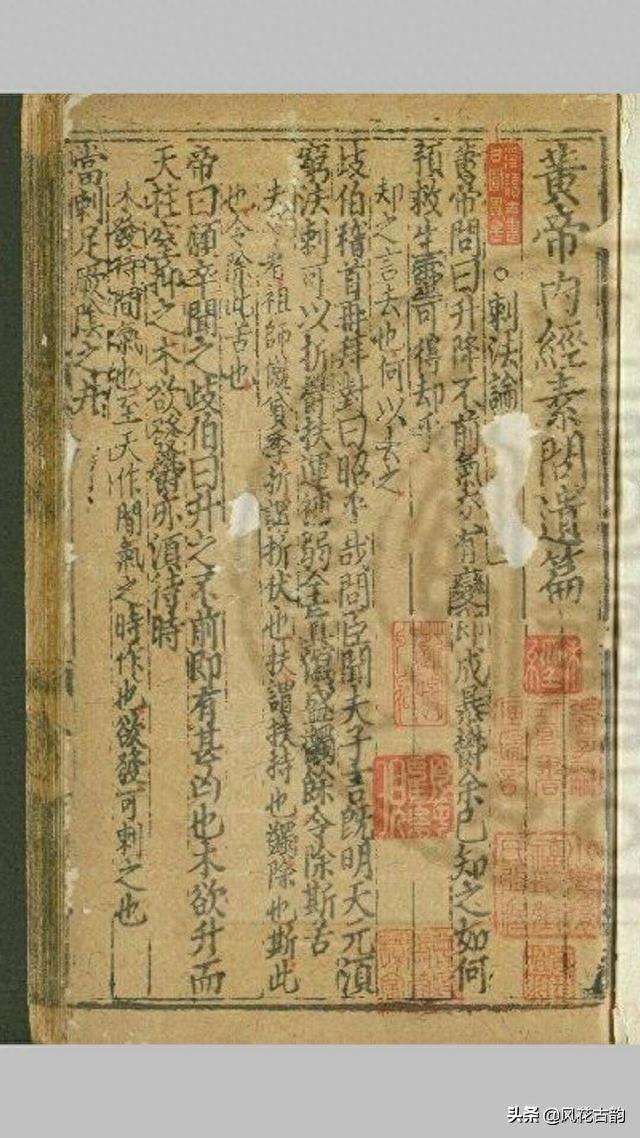 黃帝內經素問遺篇
○刺法論
黃帝問曰升降不前氣交有變即成暴鬱余已知之如何
預救生靈可得却乎
却之言去也何以去之
歧伯稽首再拜對曰昭乎哉問臣聞夫子言既明天元須
窮法刺可以折鬱扶運補弱全真瀉盛蠲餘令除斯苦
夫子者祖師僦貸季折謂折伏也扶謂扶持也蠲除也斯此
也令除此苦也
帝曰願卒聞之歧伯曰升之不前即有甚凶也木欲升而
天柱窒抑之木欲發鬱亦須待時
木發待間氣也至天作間氣之時作也欲發可刺之也
當刺足厥陰之井
头条 @风花古韵